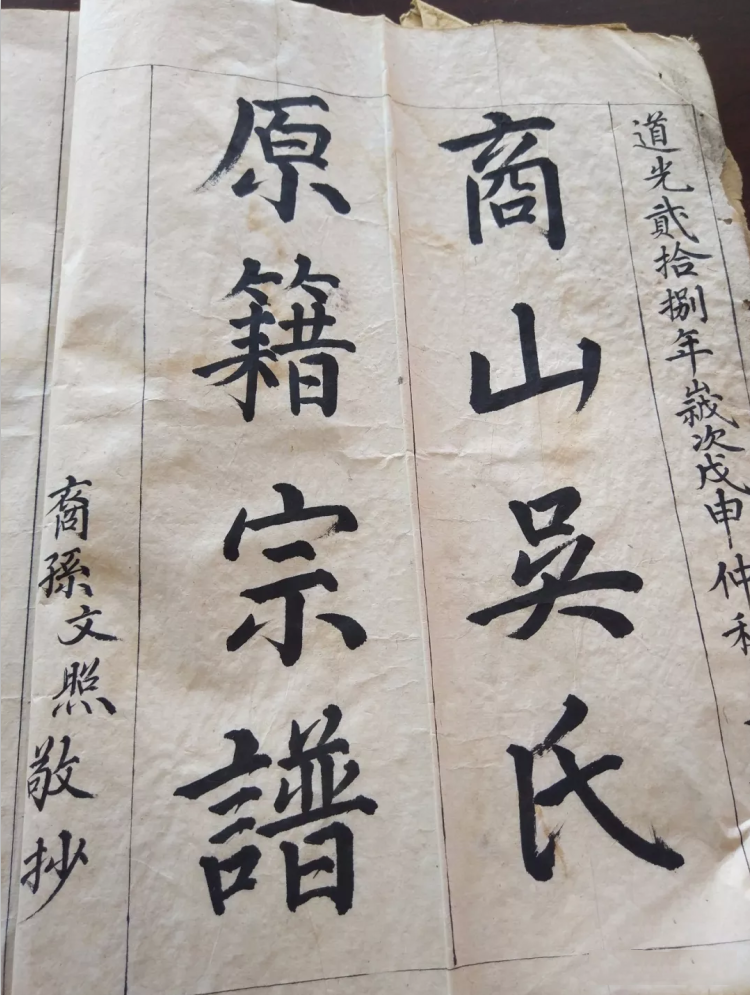 道光貳拾捌年嵗次戊申仲秋
商山吳氏
原籍宗譜
裔孫文照敬抄